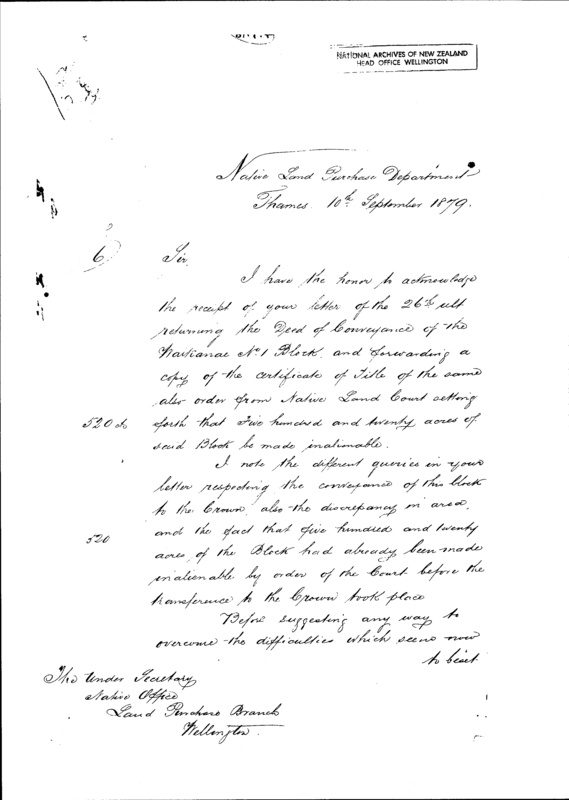 NATIONAL ARCHIVES OF NEW ZEALAND
HEAD OFFICE WELLINGTON
Native Land Purchase Department
Thames 10th September 1879.
6
Sir
I have the honor to acknowledge
the receipt of your letter of the 26th ult
returning the Deed of Conveyance of the
No 1 Block and forwarding a
copy of the certificate of Title of the same
also order from Native Land Court setting
520 a
forth that Five hundred and twenty acres of
said Block be made inalienable.
I note the different queries in your
letter respecting the conveyance of this block
to the Crown, also the discrepancy in area,
520
and the fact that five hundred and twenty
acres of the Block had already been made
inalienable by order of the Court before the
transference to the Crown took place
Before suggesting any way to
overcome the difficulties which seem now
to exist
The Under Secretary
Native Office
Land Purchase Branch
Wellington.